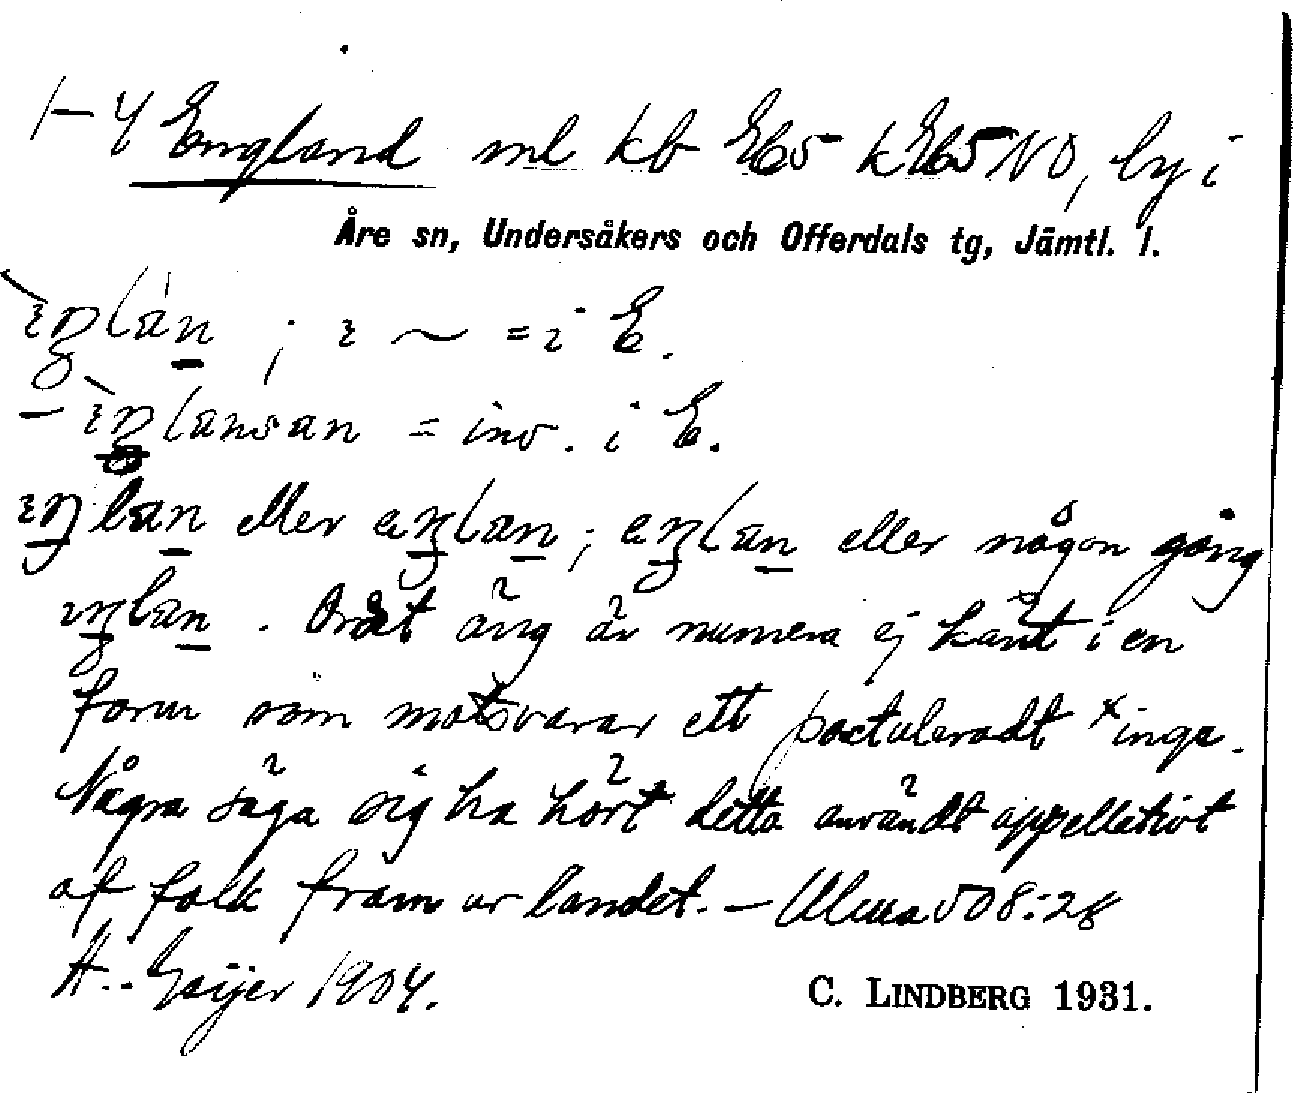 1-4 England ml kb E65 kE65NO, by i
Åre sn, Undersåkers och Offerdals tg, Jämtl. l.
= i E.
= inv. i E.
eller ; eller någon gång
. Ordet äng är numera ej känt i en
form som motsvarar ett postuleradt *inga.
Några säga sig ha hört detta användt appellativt
af folk fram ur landet. – Ulma 508:28
H. Geijer 1904.
C. LINDBERG 1931.